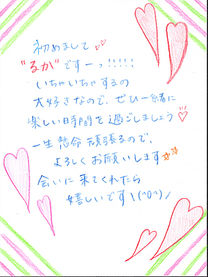 初めまして♡
"るか"ですーっ!!!!!
いちゃいちゃするの
大好きなので、ぜひ一緒に
楽しい時間を過ごしましょう♡
一生懸命頑張るので、
よろしくお願いします☆☆
会いに来てくれたら
嬉しいです\(^o^)/